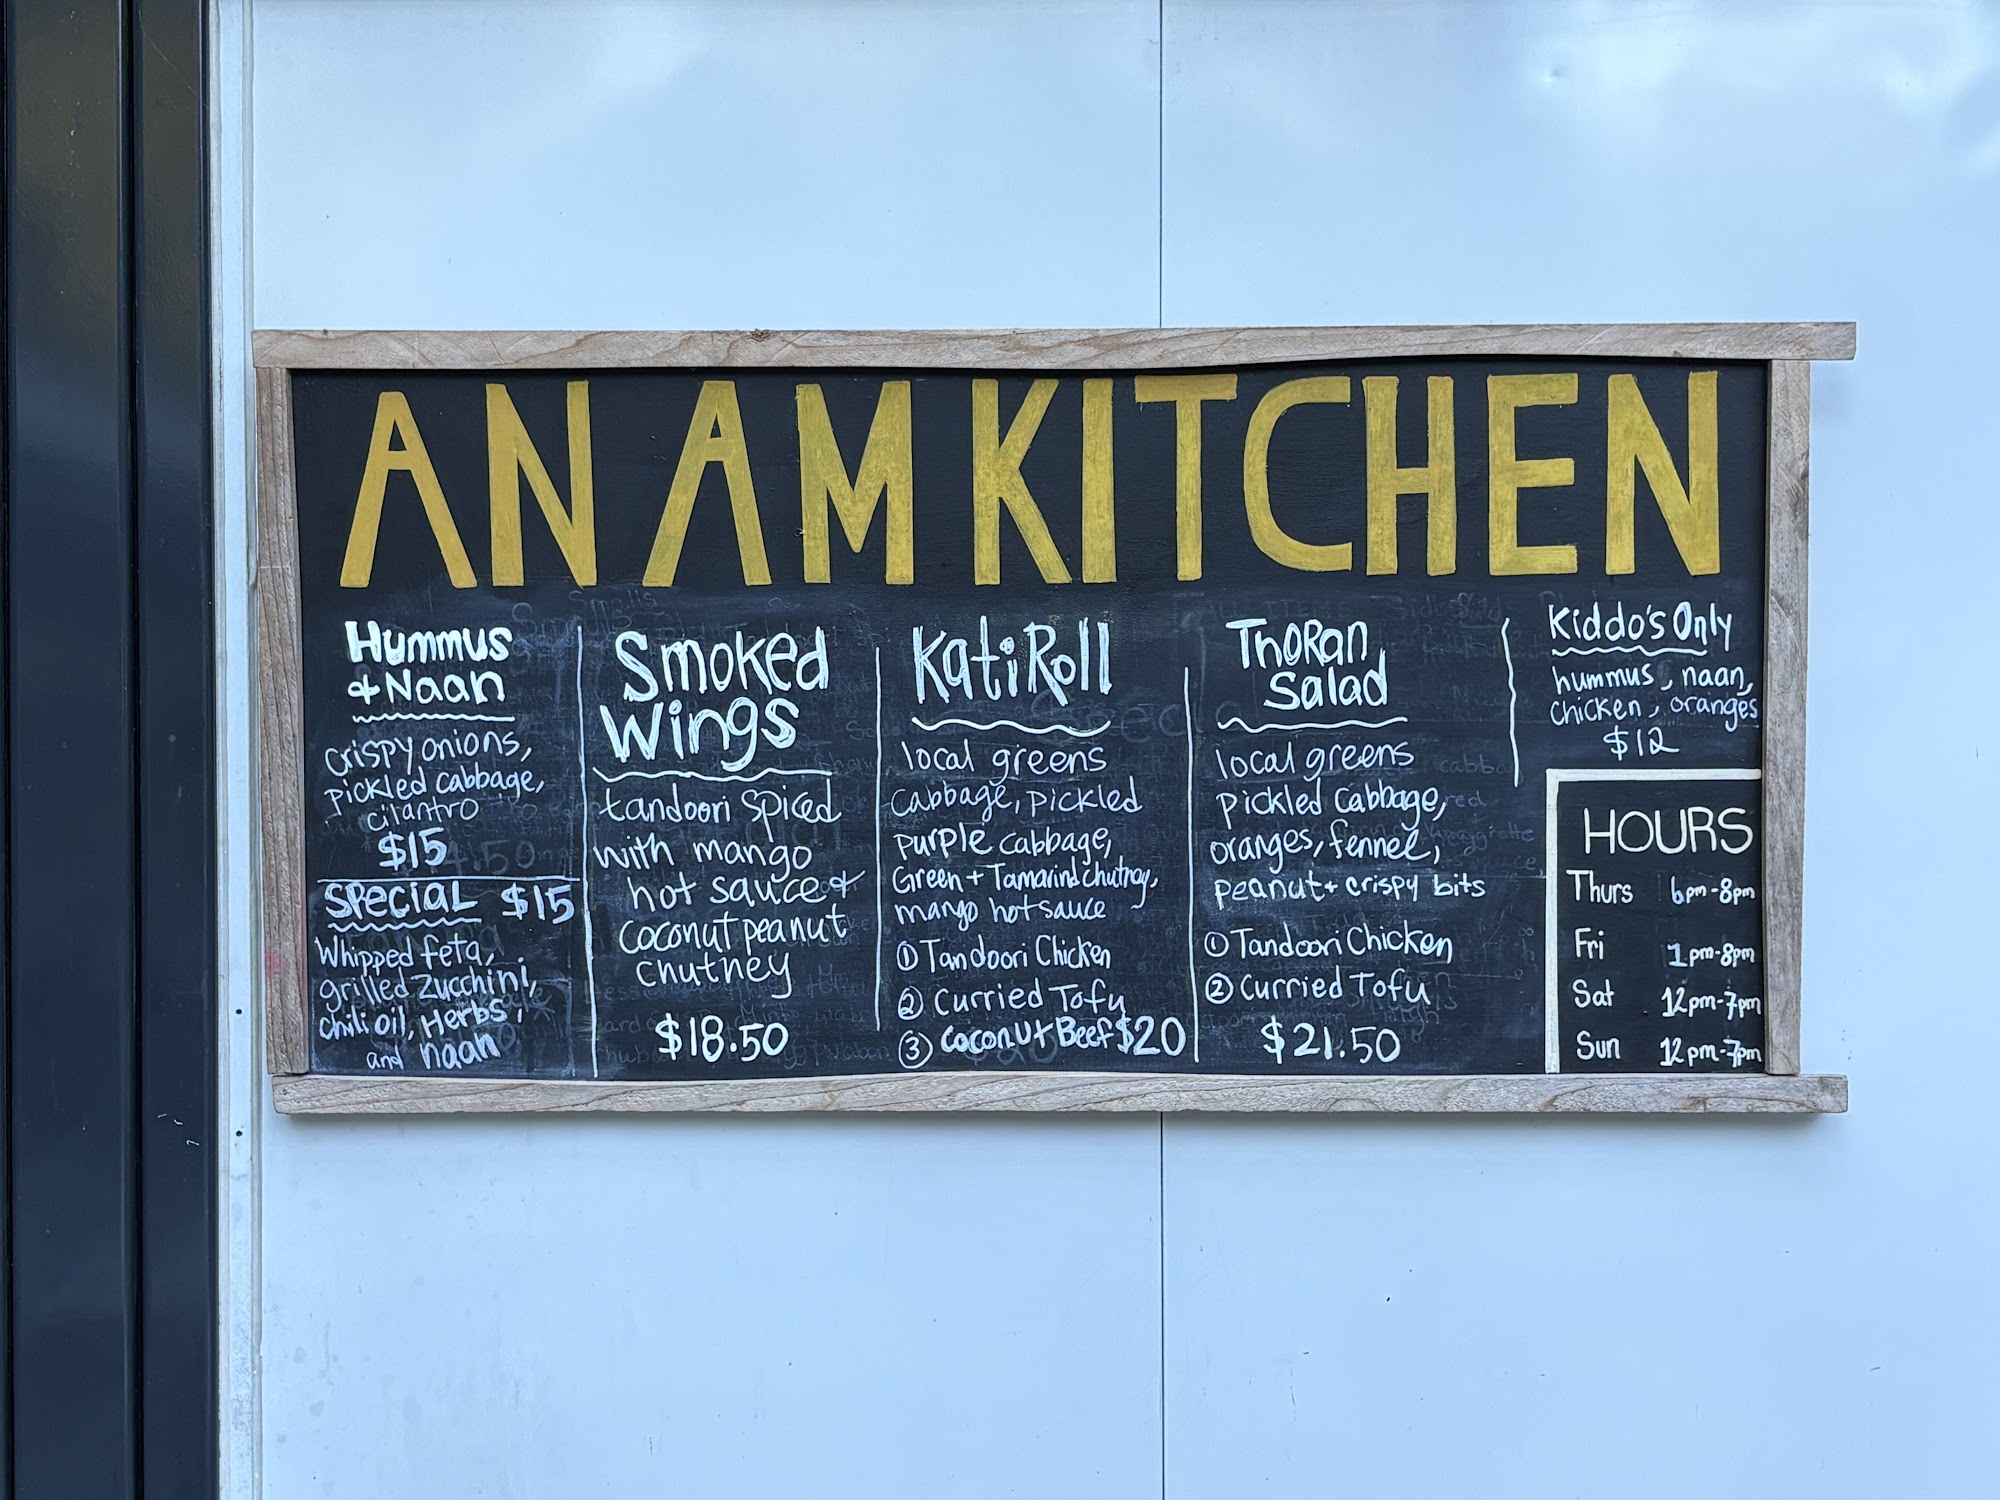 ANAM KITCHEN
Hummus
& Naan
crispy onions,
pickled cabbage,
cilantro
$15
Special $15
Whipped feta,
grilled zucchini,
chili oil, Herbs,
and naan
Smoked
Wings
tandoori spiced
with mango
hot sauce &
coconut peanut
chutney
$18.50
Kati Roll
local greens
cabbage, pickled
purple cabbage,
Green + Tamarind chutney,
mango hot sauce
① Tandoori Chicken
② Curried Tofu
③ Coconut Beef $20
Thoran
Salad
local greens
pickled cabbage,
oranges, fennel,
peanut + crispy bits
① Tandoori Chicken
② Curried Tofu
$21.50
Kiddo's Only
hummus, naan,
chicken, oranges
$12
HOURS
Thurs 6pm-8pm
Fri 1pm-8pm
Sat 12pm-7pm
Sun 12pm-7pm